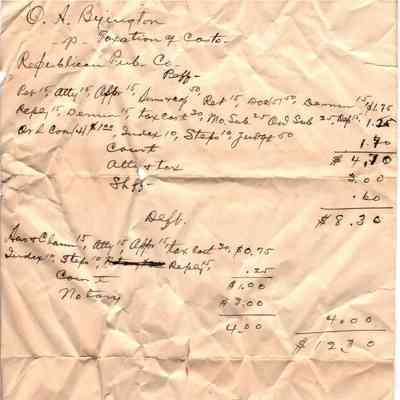 O. A. Byington
-p- Taxation of Costs.
Republican Pub. Co.
Peff-
Pet 15, Atty 15, Appr 15, 50, Ret 15, Docs 50, Demur 15, $1.75
Reply 15, Demur 15, tax cost 30, Mo Sub 25 Ord Sub 25, Rep 15, 1.25
Ord Con (4) $1.00, Index 10, Steps 10, Judgt 50 1.70
Court $4.70
Atty & tax 3.00
Shff- .60
$8.30
Deft.
Ans & Claim 15, Atty 15, Appr 15, tax cost 30, $0.75
Index 10, Steps 10, Reply 15, .25
Court $1.00
Notary $3.00
4.00 4.00
$12.30